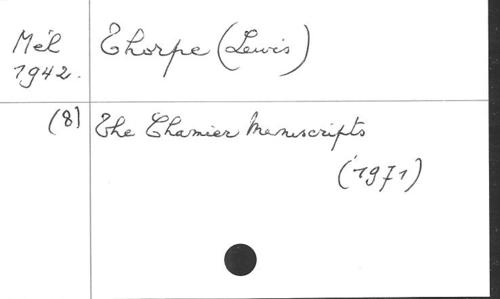 Mél
1942.
Thorpe (Lewis)
(8) The Chamier Manuscripts
(1971)